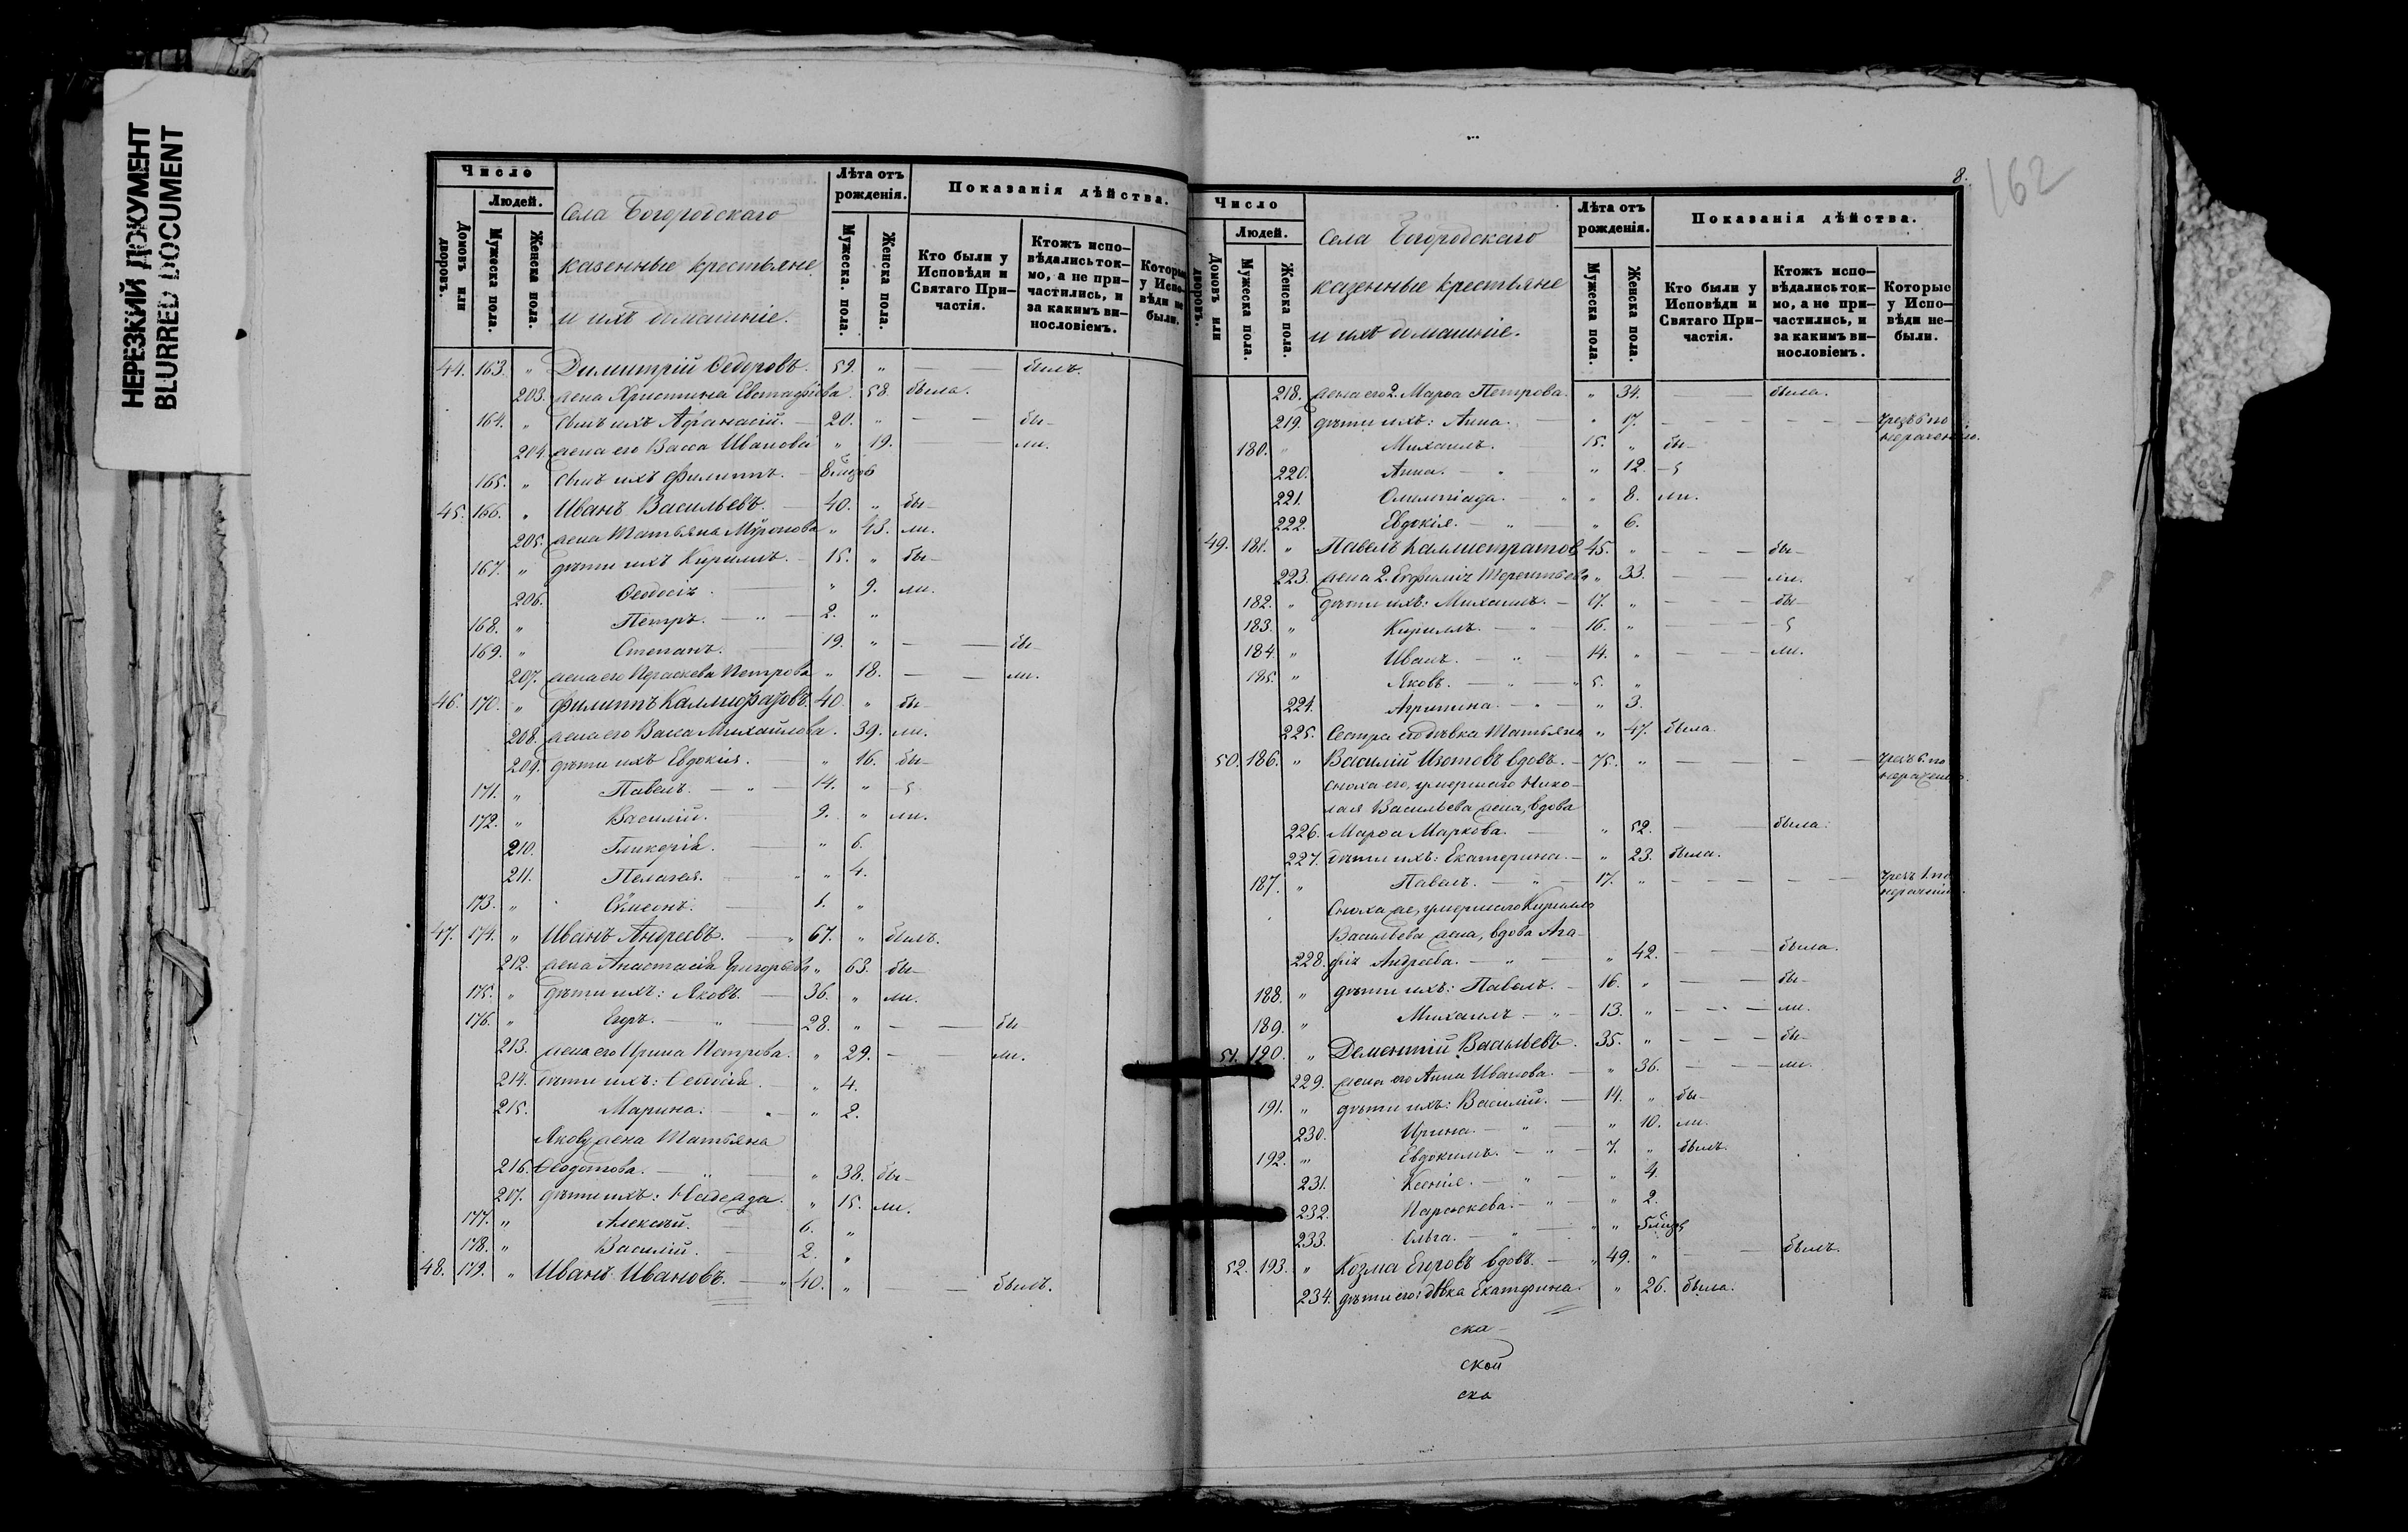 НЕРЕЗКИЙ ДОКУМЕНТ
BLURRED DOCUMENT
Число
Людей.
Домовъ или дворовъ.
Мужеска пола.
Женска пола.
Села Богородскаго
казенные крестьяне
и ихъ домашніе.
Лѣта отъ рожденія.
Мужеска. пола.
Женска пола.
Показанія дѣйства.
Кто были у Исповѣди и Святаго При-частія.
Ктожъ испо-вѣдались ток-мо, а не при-частились, и за какимъ ви-нословіемъ.
Которые у Испо-вѣди не были.
44. 163. " Димитрій Ѳедоровъ. 59. " — — былъ.
203. жена Христина Евстафіева. 58. была.
164. " сынъ ихъ Афанасій. — 20. " — — бы-
204. жена его Васса Иванова " 19. — ли.
165. " сынъ ихъ Филиппъ. —
45. 166. " Иванъ Васильевъ. — 40. " бы-
205. жена Татьяна Мѵронова " 43. ли.
167. " дѣти ихъ Кириллъ. — 15. " бы-
206. Ѳеодосія. — " 9. ли.
168. " Петръ. — " — 2. "
169. " Степанъ. — 19. " — — бы-
207. жена его Параскева Петрова " 18. — — ли.
46. 170. " Филиппъ 40. " бы-
208. жена его Васса Михайлова. 39. ли.
209. дѣти ихъ Евдокія. " 16. бы-
171. " Павелъ. — " — 14. "
172. " Василій. — 9. " ли.
210. Гликерія. — " 6.
211. Пелагея. " " 4.
173. " Сѵмеонъ. — 1. "
47. 174. " Иванъ Андреевъ. — " 67. " былъ.
212. жена Анастасія Григорьева " 63. бы-
175. " дѣти ихъ: Яковъ. — 36. " ли.
176. " Егоръ. — " — 28. " — — бы-
213. жена его Ирина Петрова. " 29. — — ли.
214. дѣти ихъ: " 4.
215. Марина. — " — " 2.
Якова жена Татьяна
216. Ѳеодотова. — " " 38. бы-
217. дѣти ихъ: Надежда. " 15. ли.
177. " Алексѣй. — 6. "
178. " Василій. — 2. "
48. 179. " Иванъ Ивановъ. — " 40. " — — былъ.
8.
162
Число
Людей.
Домовъ или дворовъ.
Мужеска пола.
Женска пола.
Села Богородскаго
казенные крестьяне
и ихъ домашніе.
Лѣта отъ рожденія.
Мужеска пола.
Женска пола.
Показанія дѣйства.
Кто были у Исповѣди и Святаго При-частія.
Ктожъ испо-вѣдались ток-мо, а не при-частились, и за какимъ ви-нословіемъ.
Которые у Испо-вѣди не-были.
218. жена его 2. Марѳа Петрова. " 34. — была.
219. дѣти ихъ: Анна. — " 17. — — — — по нераченію.
180. " Михаилъ. 15. " бы-
220. Анна. — " " 12.
221. Олимпіада. — " " 8. ли.
222. Евдокія. — " — " 6.
49. 181. " Павелъ Каллистратов 45. " — — — бы-
223. жена 2. Евфимія Терентьева " 33. — — ли.
182. " дѣти ихъ: Михаилъ. — 17. " — — — бы-
183. " Кириллъ. — " — 16. " — — —
184. " Иванъ. — " — 14. " — — — ли.
185. " Яковъ. — " — " 5. "
224. Агрипина. — " — " 3.
225. Сестра его дѣвка Татьяна " 47. была.
50. 186. " Василій Изотовъ вдовъ. — 75. " — — — — по нераченію.
сноха его, умершаго Нико-
лая Васильева жена, вдова
226. Марѳа Маркова. — " 52. — — была.
227. дѣти ихъ: Екатерина. — " 23. была.
187. " Павелъ. — " — 17. " — — — — по нераченію.
Сноха же, умершаго Кирилла
Васильева жена, вдова Ага-
228. фія Андреева. — " — " 42. — — — была.
188. " дѣти ихъ: Павелъ. — 16. " — — бы-
189. " Михаилъ — " — 13. " — — — ли.
51. 190. " Дементій Васильевъ. 35. " — — — бы-
229. жена его Анна Иванова. — " 36. — — — ли.
191. " дѣти ихъ: Василій. — 14. " бы-
230. Ирина. — " — " 10. ли.
192. " Евдокимъ. — " — 7. " былъ.
231. Ксенія. — " — " 4.
232. Параскева. — " — " 2.
233. Ольга. — " — " "
52. 193. " Козма Егоровъ вдовъ. — " 49. " — — былъ.
234. дѣти его: дѣвка Екатерина. " 26. была.
ска-
ской
ска